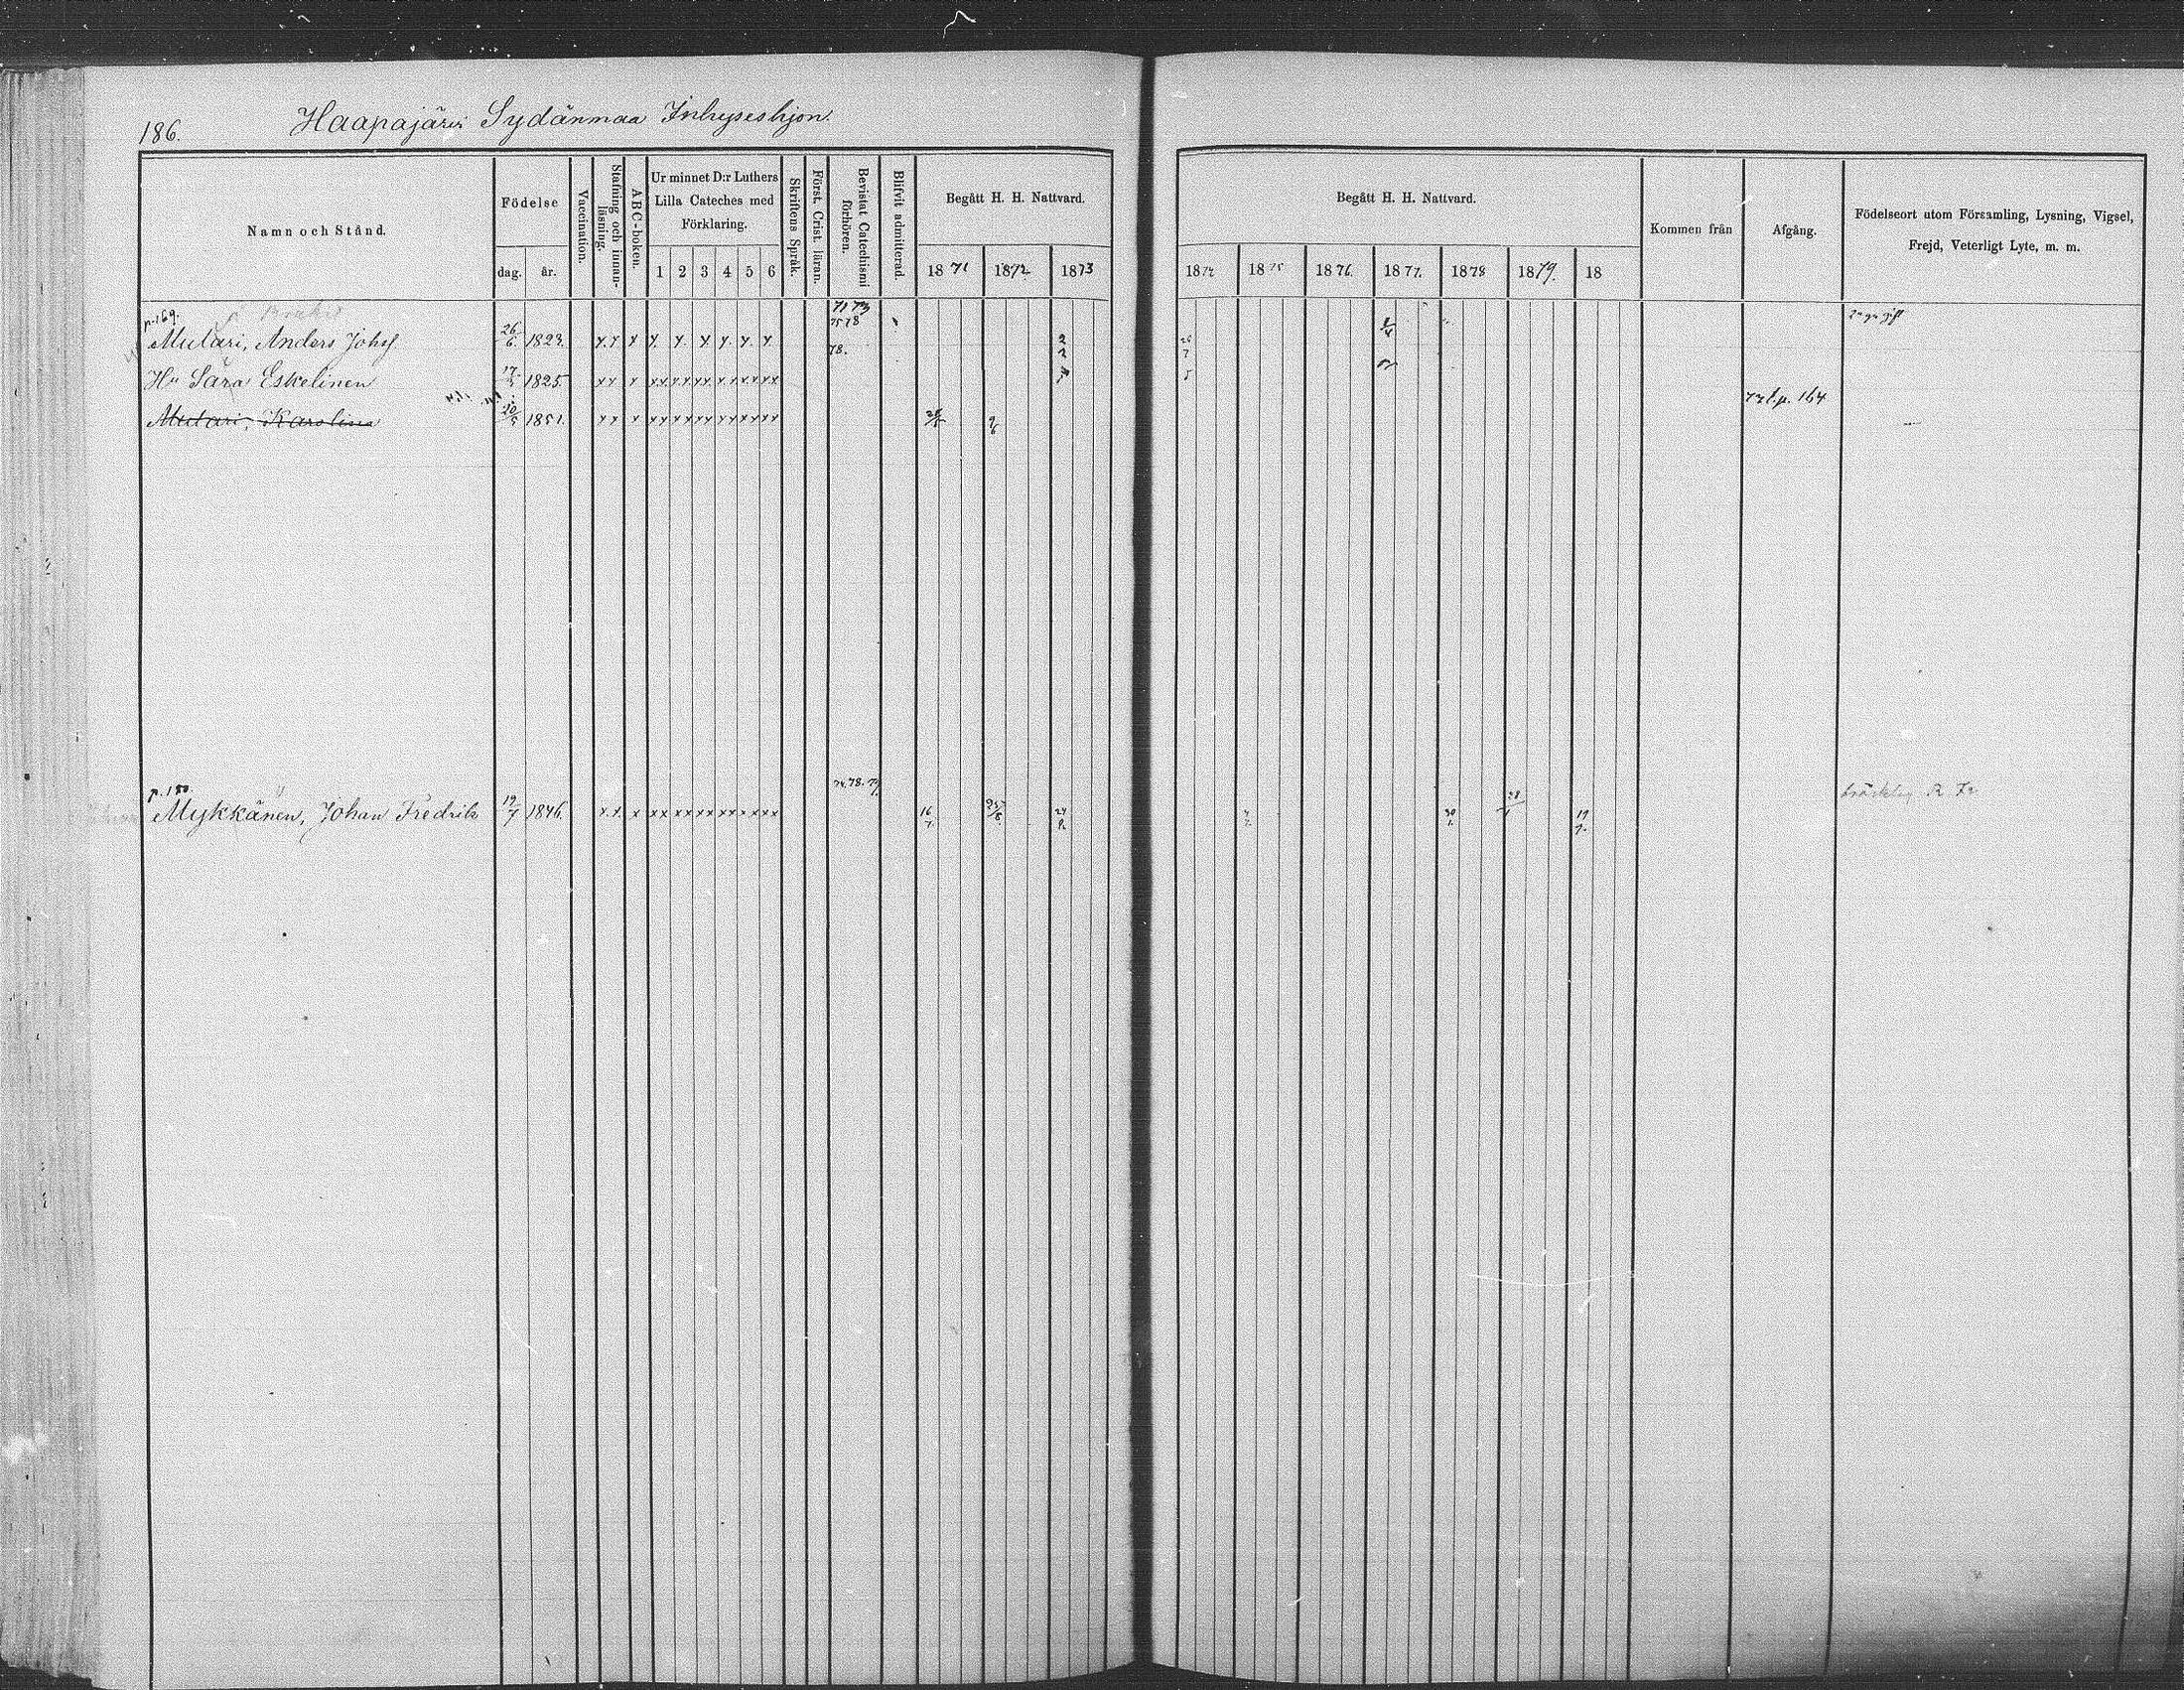 186. Haapajärvi Sydänmaa Inhyseshjon.
Namn och Stånd.
Födelse
dag. år.
Vaccination.
Stafning och innanläsning.
ABC-boken.
Ur minnet D:r Luthers
Lilla Cateches med
Förklaring.
1 2 3 4 5 6
Skriftens Språk.
Först. Crist. läran.
Bevistat Catechismi
förhören.
Blifvit admitterad.
Begått H. H. Nattvard.
1871 1872 1873
Begått H. H. Nattvard.
1874 1875 1876. 1877. 1878 1879. 18
Kommen från
Afgång.
Födelseort utom Församling, Lysning, Vigsel,
Frejd, Veterligt Lyte, m. m.
p. 169. 71 73
75 78
Mulari, Anders Johsf 26/6. 1823. x x x x x x x x x 78.
Hu Sara Eskelinen 17/5 1825 x x x x x x x x x x x x x x x
Mulari, Karolina 20/5 1851. x x x x x x x x x x x x x x x 9/6 72 t.p. 164
p. 180. 74. 78. 79.
Mykkänen, Johan Fredrik 19/7 1846. x x x x x x x x x x x x x x x 16/7. 25/8. 24/8. 19/7.